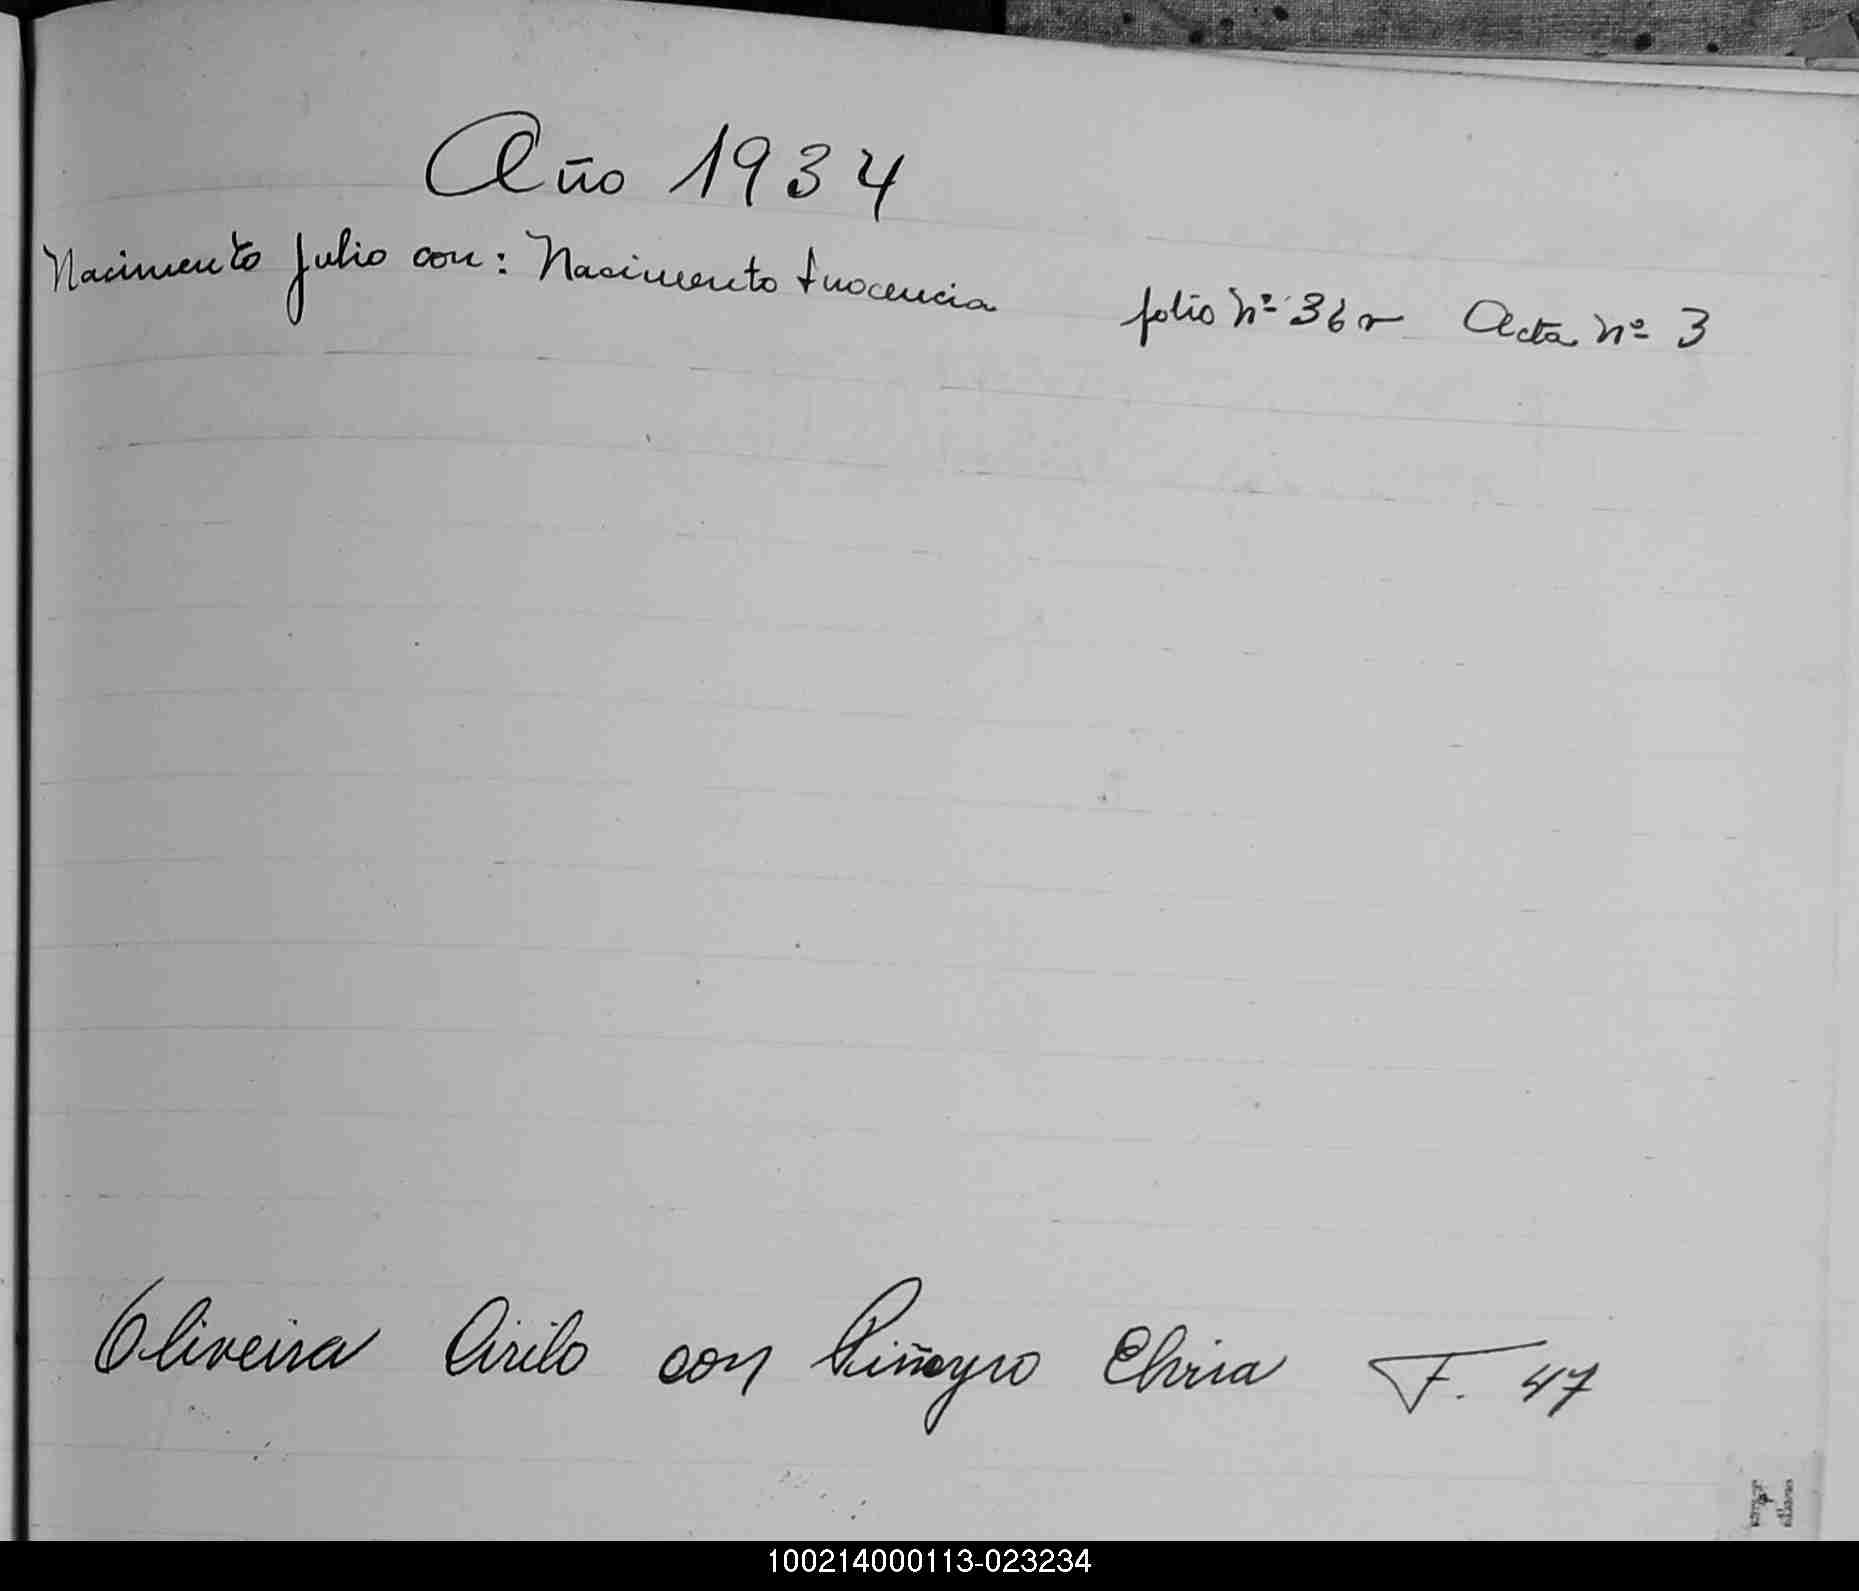 Año 1934
Nacimento Julio con: Nacimento Inocencia folio Nº 36 r Acta Nº 3
Oliveira Cirilo con Piñeyro Elvira F. 47
100214000113-023234